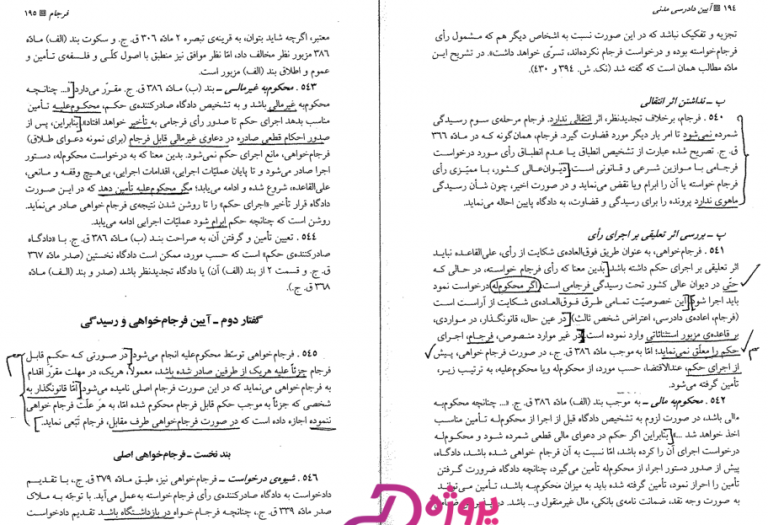 ۱۹۴ آیین دادرسی مدنی
تجزیه و تفکیک نباشد که در این صورت نسبت به اشخاص دیگر هم که مشمول رأی
فرجام‌خواسته بوده و درخواست فرجام نکرده‌اند، تسرّی خواهد داشت». در تشریح این
ماده مطالب همان است که گفته شد (نک. ش. ۳۹۴ و ۴۳۰).
ب ـ نداشتن اثر انتقالی
۵۴۰ . فرجام، برخلاف تجدیدنظر، اثر انتقالی ندارد. فرجام مرحله‌ی سوم رسیدگی
شمرده نمی‌شود تا امر بار دیگر مورد قضاوت گیرد. فرجام، همان‌گونه که در مـادّه ۳۶۶
ق. ج. تصریح شده عبارت از تشخیص انطباق یـا عـدم انطبـاق رأی مـورد درخواسـت
فرجـامی بـا مـوازین شـرعی و قـانونی اسـت. دیـوان‌عالی کشـور، بـا ممیّـزی رأی
فرجام خواسته یا آن را ابرام ویا نقض می‌نماید و در صورت اخیر، چون شـأن رسـیدگی
ماهوی ندارد پرونده را برای رسیدگی و قضاوت، به دادگاه پایین احاله می‌نماید.
پ ـ بررسی اثر تعلیقی بر اجرای رأی
۵۴۱ . فرجام‌خواهی، به عنوان طریق فوق‌العاده‌ی شکایت از رأی، علی‌القاعـده نبایـد
اثر تعلیقی بر اجرای حکم داشته باشد بدین معنا که رأی فرجام خواسته، در حـالی کـه
حتّی در دیوان عالی کشور تحت رسیدگی فرجامی است، اگر محکوم‌له درخواست نمود
باید اجرا شود. این خصوصیّت تمـامی طـرق فـوق‌العـاده‌ی شـکایت از آراسـت اسـت
(فرجام، اعاده‌ی دادرسی، اعتراض شخص ثالث) در عین حال، قانونگـذار، در مـواردی،
بر قاعده‌ی مزبور استثنائاتی وارد نموده است. در غیر موارد منصـوص، فرجـام، اجـرای
حکم را معلّق نمی‌نماید؛ امّا به موجب مادّه ۳۸۶ ق. ج. در صورت فرجام خواهی، پـیش
از اجرای حکم، عندالاقتضا، حسب مورد، از محکوم‌له ویا محکوم‌علیه، به ترتیب زیـر،
تأمین گرفته می‌شود.
۵۴۲ . محکوم‌به مالی ـ به موجب بند (الف) مادّه ۳۸۶ ق. ج. «... چنانچه محکوم‌بـه
مالی باشد، در صورت لزوم به تشخیص دادگاه قبل از اجرا از محکوم‌لـه تـأمین مناسـب
اخذ خواهد شد ...» بنابراین اگر حکم در دعوای مالی قطعی شمرده شود و محکـوم‌لـه
درخواست اجرای آن را کرده باشد، امّا نسبت به آن فرجام خواهی شـده باشـد، دادگـاه،
پیش از صدور دستور اجرا، از محکوم‌له تأمین می‌گیرد، چنانچه دادگاه ضرورت گـرفتن
تأمین را احراز نمود، تأمین گرفته شده باید به میزان محکوم‌بـه باشـد،
به صورت وجه نقد، ضمانت نامه‌ی بانکی، مال غیرمنقول و... باشد.
فرجام ۱۹۵
معتبر، اگرچه شاید بتوان، به قرینه‌ی تبصره ۲ مادّه ۳۰۶ ق. ج. و سکوت بند (الف) مـادّه
۳۸۶ مزبور نظر مخالف داد، امّا نظر موافق نیز منطبق با اصول کلّـی و فلسـفه‌ی تـأمین و
عموم و اطلاق بند (الف) مزبور است.
۵۴۳ . محکوم‌به غیرمالی ـ بند (ب) مـادّه ۳۸۶ ق. ج. مقـرّر مـی‌دارد «... چنانچـه
محکوم‌به غیرمالی باشد و به تشخیص دادگاه صادرکننده‌ی حکم، محکـوم‌علیـه تـأمین
مناسب بدهد اجرای حکم تا صدور رأی فرجامی به تأخیر خواهد افتاد» بنابراین، پس از
صدور احکام قطعی صادره در دعاوی غیرمالی قابل فرجام (برای نمونه دعـوای طـلاق)
فرجام‌خواهی، مانع اجرای حکم نمی‌شود. بدین معنا که به درخواست محکوم‌له، دستور
اجرا صادر می‌شود و تا پایان عملیّات اجرایی، اقدامات اجرایی، بی‌هـیچ وقفـه و مـانعی،
علی‌القاعده، شروع شده و ادامه می‌یابد؛ مگر محکوم‌علیه تأمین دهد که در ایـن صـورت
دادگاه قرار تأخیر «اجرای حکم» را تا روشن شدن نتیجه‌ی فرجام خواهی صادر می‌نماید.
روشن است که چنانچه حکم ابرام شود عملیّات اجرایی ادامه می‌یابد.
۵۴۴ . تعیین تأمین و گرفتن آن، به صراحت بنـد (ب) مـادّه ۳۸۶ ق. ج. بـا «دادگـاه
صادرکننده‌ی حکم» است که حسب مورد، ممکن است دادگاه نخستین (صدر مادّه ۳۶۷
ق. ج. و قسمت ۲ از بند (الف) آن) یا دادگاه تجدیدنظر باشد (صدر و بند (الـف) مـادّه
۳۶۸ ق. ج.).
گفتار دوم ـ آیین فرجام‌خواهی و رسیدگی
۵۴۵ . فرجام‌خواهی توسّط محکوم‌علیه انجام می‌شود در صـورتی کـه حکـم قابـل
فرجام جزئاً علیه هریک از طرفین صادر شده باشد، معمولاً، هریک، در مهلت مقرّر اقدام
به فرجام‌خواهی می‌نماید که در این صورت فرجام اصلی نامیده می‌شود امّا قانونگذار به
شخصی که جزئاً به موجب حکم قابل فرجام محکوم شده امّا، به هر علّت فرجام خواهی
ننموده اجازه داده است که در صورت فرجام‌خواهی طرف مقابل، فرجام تَبَعی نماید.
بند نخست ـ فرجام‌خواهی اصلی
۵۴۶ . شیوه‌ی درخواست ـ فرجام‌خواهی نیز، طبـق مـادّه ۳۷۹ ق. ج.، بـا تقـدیـم
دادخواست به دادگاه صادرکننده‌ی رأی فرجام‌خواسته به‌عمل می‌آید. با توجّه بـه مـلاک
صدر مادّه ۳۳۹ ق. ج.، چنانچـه فرجـام خـواه در بازداشتگاه باشـد تقدیم دادخواسـت
پروژه